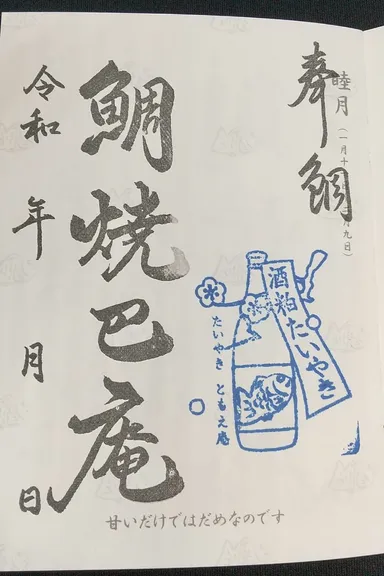 睦月(一月十
月九日)
奉鯛
酒粕たいやき
たいやき ともえ庵
鯛焼巴庵
令和 年 月 日
甘いだけではだめなのです